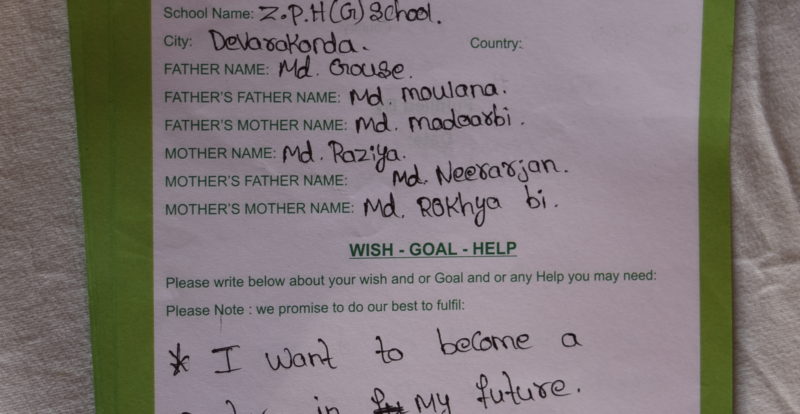 School Name: Z.P.H(G) School.
City: Devarakonda. Country:
FATHER NAME: Md. Gouse.
FATHER'S FATHER NAME: Md. moulana.
FATHER'S MOTHER NAME: Md. madaarbi.
MOTHER NAME: Md. Raziya.
MOTHER'S FATHER NAME: Md. Neerarjan.
MOTHER'S MOTHER NAME: Md. Rokhya bi.
WISH - GOAL - HELP
Please write below about your wish and or Goal and or any Help you may need:
Please Note : we promise to do our best to fulfil:
* I want to become a
in My future.